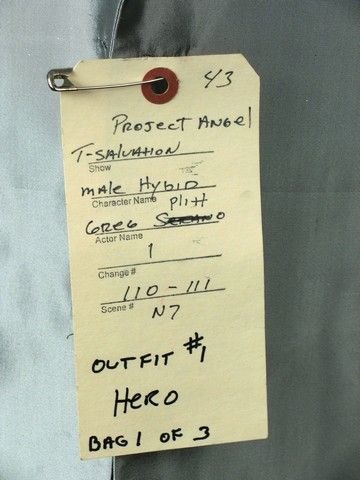 43
Project Angel
T-Salvation
Show
Male Hybid
Character Name Plitt
Greg Serano
Actor Name
1
Change #
110 - 111
Scene # N7
OUTFIT #1
Hero
BAG 1 OF 3